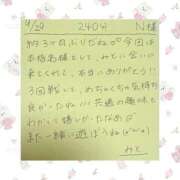 4/29 240分 N様
約3ヶ月ぶりだね♡今回は
本指名様として、みとに会いに
来てくれて、本当にありがとう!!
3回戦して、めちゃくちゃ気持ち
良かったね!!!共通の趣味も
わかって嬉しかったなぁ
また一緒に遊ぼうね
みと